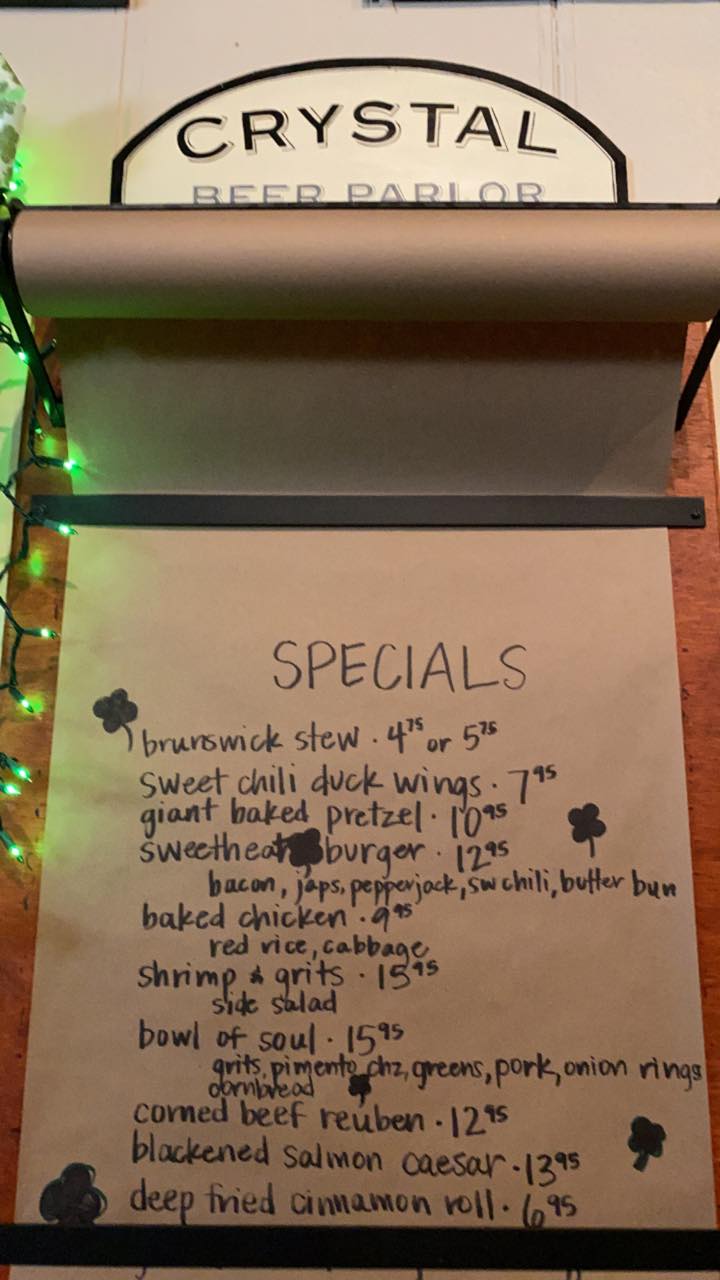 CRYSTAL
BEER PARLOR
SPECIALS
brunswick stew · 4⁷⁵ or 5⁷⁵
sweet chili duck wings · 7⁹⁵
giant baked pretzel · 10⁹⁵
sweetheat burger · 12⁹⁵
bacon, japs, pepperjack, sw chili, butter bun
baked chicken · 9⁹⁵
red rice, cabbage
shrimp & grits · 15⁹⁵
side salad
bowl of soul · 15⁹⁵
grits, pimento chz, greens, pork, onion rings
cornbread
corned beef reuben · 12⁹⁵
blackened salmon caesar · 13⁹⁵
deep fried cinnamon roll · 6⁹⁵